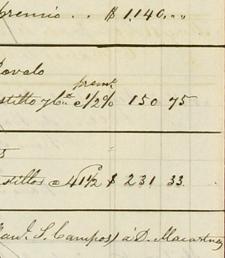 premio .. $ 1,140 ..
ovalo
premo
stillo y Ca a 1/2% 150 75
stillos a 41 1/2 $ 231 33
J. S. Campos á D. Macartney